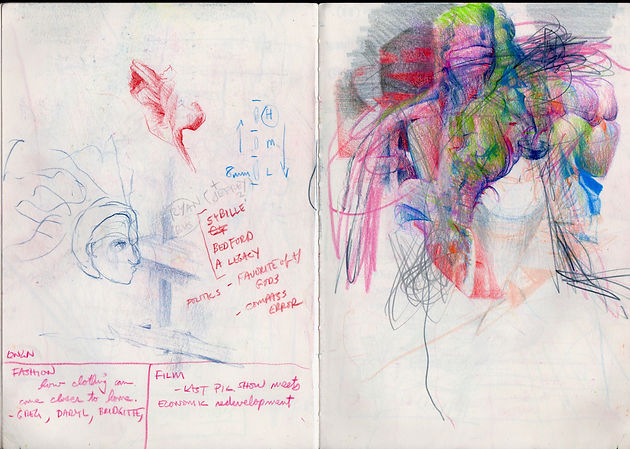 H
M
8mm L
RYAN
2
SYBILLE
BEDFORD
A LEGACY
POLITICS - FAVORITE of
GODS
- COMPASS
ERROR
FASHION
how clothing can
come closer to home.
- GREG, DARYL, BRIDGITTE,
FILM
- LAST PIC. SHOW meets
ECONOMIC redevelopment